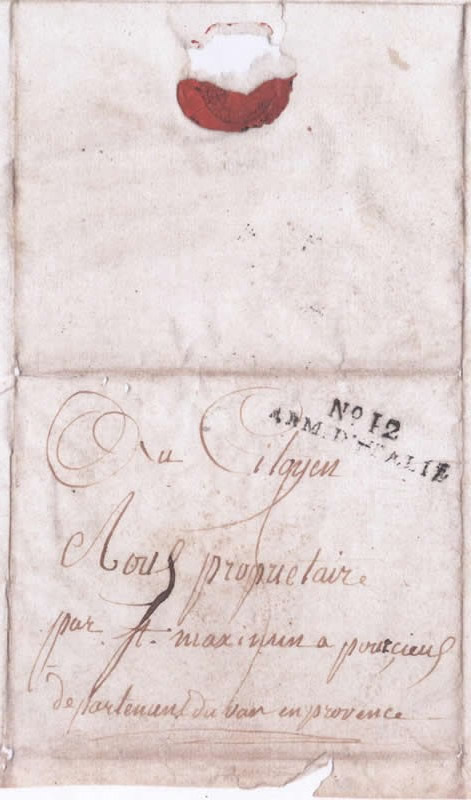 No 12
ARM. D'ITALIE
Au Citoyen
Roux propriétaire
par St. maximin a pourcieux
departement du var en provence